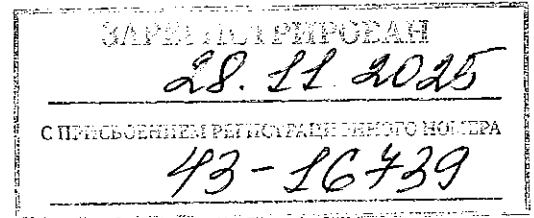 ЗАРЕГИСТРИРОВАН
28.11.2025
С ПРИСВОЕНИЕМ РЕГИСТРАЦИОННОГО НОМЕРА
43-16739